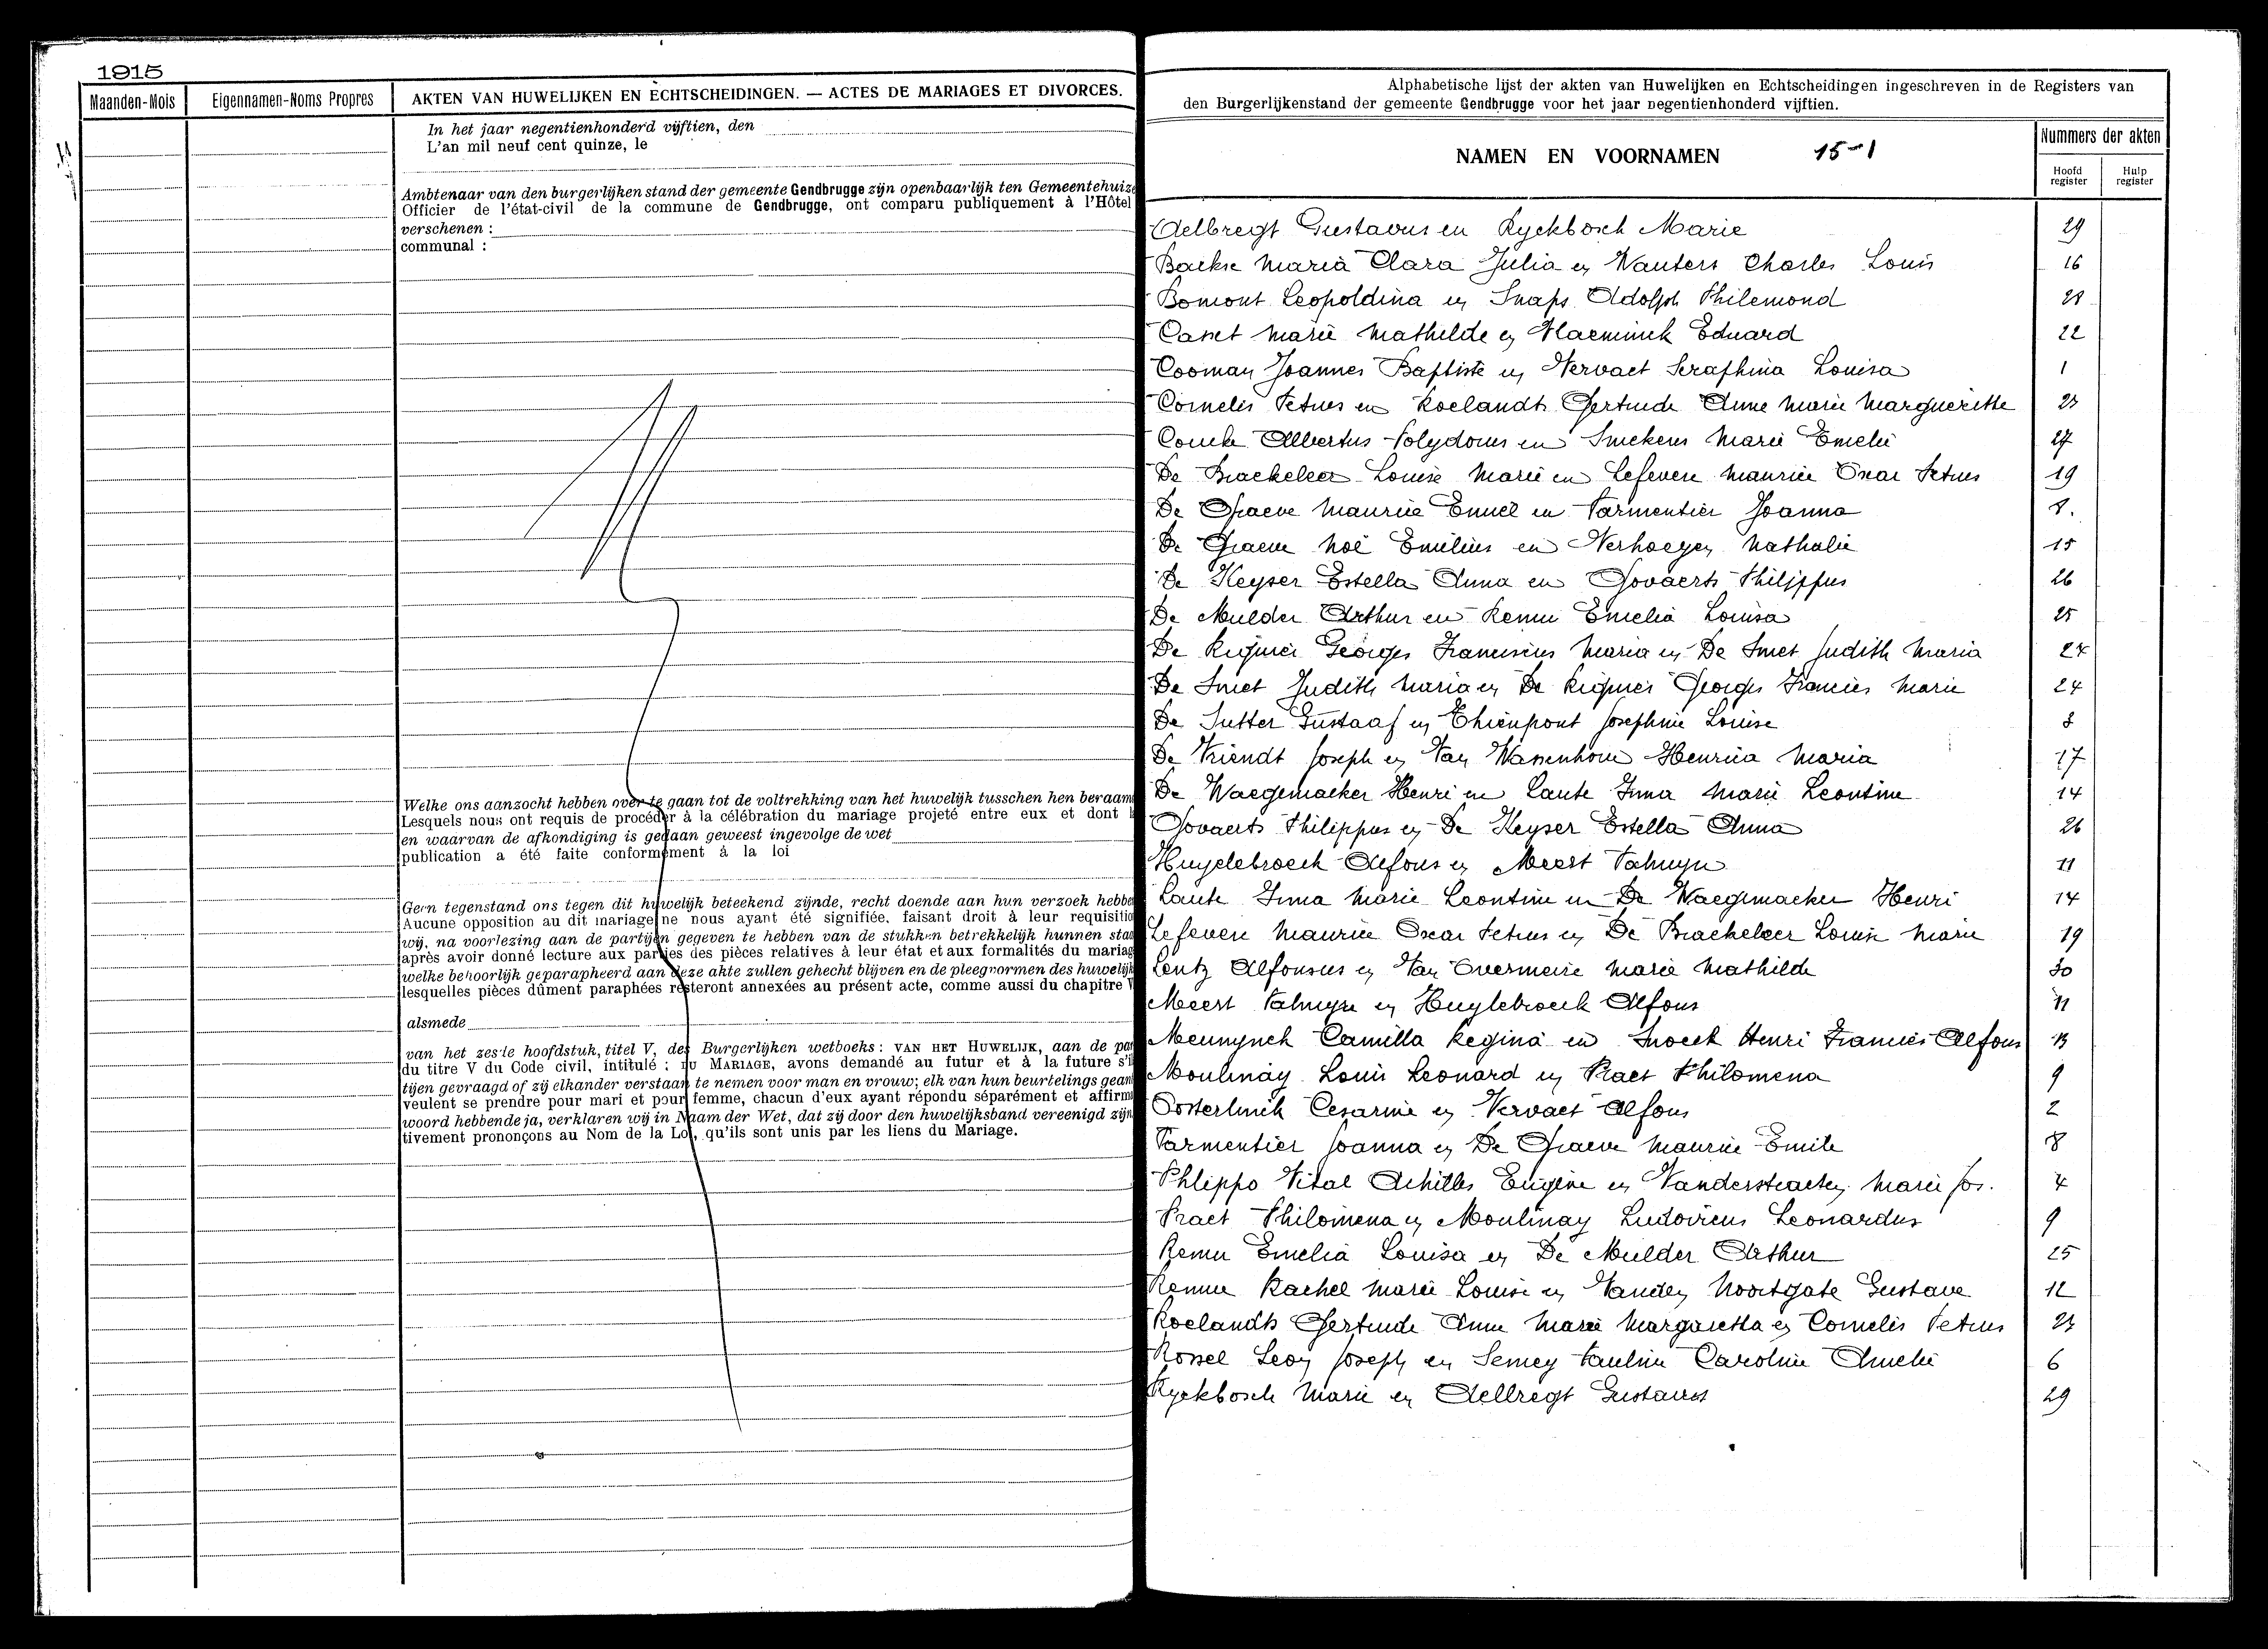 1915
Maanden-Mois
Eigennamen-Noms Propres
AKTEN VAN HUWELIJKEN EN ECHTSCHEIDINGEN. — ACTES DE MARIAGES ET DIVORCES.
In het jaar negentienhonderd vijftien, den
L'an mil neuf cent quinze, le
Ambtenaar van den burgerlijken stand der gemeente Gendbrugge zijn openbaarlijk ten Gemeentehuize
Officier de l'état-civil de la commune de Gendbrugge, ont comparu publiquement à l'Hôtel
verschenen :
communal :
Welke ons aanzocht hebben over te gaan tot de voltrekking van het huwelijk tusschen hen beraam
Lesquels nous ont requis de procéder à la célébration du mariage projeté entre eux et dont l
en waarvan de afkondiging is gedaan geweest ingevolge de wet
publication a été faite conformément à la loi
Geen tegenstand ons tegen dit huwelijk beteekend zijnde, recht doende aan hun verzoek hebbe
Aucune opposition au dit mariage ne nous ayant été signifiée, faisant droit à leur requisitio
wij, na voorlezing aan de partijen gegeven te hebben van de stukken betrekkelijk hunnen staa
après avoir donné lecture aux parties des pièces relatives à leur état et aux formalités du mariag
welke behoorlijk geparapheerd aan deze akte zullen gehecht blijven en de pleegvormen des huwelijk
lesquelles pièces dûment paraphées resteront annexées au présent acte, comme aussi du chapitre V
alsmede
van het zesde hoofdstuk, titel V, des Burgerlijken wetboeks : VAN HET HUWELIJK, aan de pa
du titre V du Code civil, intitulé : DU MARIAGE, avons demandé au futur et à la future s'i
tijen gevraagd of zij elkander verstaan te nemen voor man en vrouw; elk van hun beurtelings gean
veulent se prendre pour mari et pour femme, chacun d'eux ayant répondu séparément et affirm
woord hebbende ja, verklaren wij in Naam der Wet, dat zij door den huwelijksband vereenigd zijn
tivement prononçons au Nom de la Loi, qu'ils sont unis par les liens du Mariage.
Alphabetische lijst der akten van Huwelijken en Echtscheidingen ingeschreven in de Registers van
den Burgerlijkenstand der gemeente Gendbrugge voor het jaar negentienhonderd vijftien.
NAMEN EN VOORNAMEN 15-1
Nummers der akten
Hoofd register
Hulp register
Aelbregt Gustavus en Ryckbosch Marie 29
Baekse Maria Clara Julia en Wauters Charles Louis 16
Bomont Leopoldina en Snaps Adolph Philemond
Casset Marie Mathilde en Vlaeminck Eduard 22
Cooman Joannes Baptiste en Vervaet Seraphina Louisa 1
Cornelis Petrus en Roelandts Gertrude Anne Marie Margueritte 23
Coucke Albertus Polydorus en Smekens Marie Emelie 27
De Braekeleer Louise Marie en Lefevere Maurice Oscar Petrus 19
De Graeve Maurice Emiel en Parmentier Joanna 8.
De Graeve Noë Emilius en Verhoegen Nathalie 15
De Keyser Estella Anna en Govaerts Philippus 26
De Mulder Arthur en Remu Emelia Louisa 25
De Reymer Georges Franciscus Maria en De Smet Judith Maria 24
De Smet Judith Maria en De Reymer Georges Francies Marie 24
De Sutter Gustaaf en Thienpont Josephine Louise
De Vriendt Joseph en Van Wassenhove Henrica Maria 17
De Waegemaeker Henri en Laute Irma Marie Leontine 14
Govaerts Philippus en De Keyser Estella Anna 26
Huyelebroeck Alfons en Meert Palmyre 11
Laute Irma Marie Leontine en De Waegemaeker Henri 14
Lefevere Maurice Oscar Petrus en De Braekeleer Louise Marie 19
Lentz Alfonsus en Van Overmeire Marie Mathilde 30
Meert Palmyre en Huylebroeck Alfons 11
Meunynck Camilla Regina en Snoeck Henri Francies Alfons 13
Moulinay Louis Leonard en Praet Philomena 9
Oosterlinck Cesarine en Vervaet Alfons 2
Parmentier Joanna en De Graeve Maurice Emile 8
Phlippo Vital Achilles Eugène en Vanderstraeten Marie Jos. 4
Praet Philomena en Moulinay Ludovicus Leonardus 9
Remu Emelia Louisa en De Mulder Arthur 25
Remue Rachel Marie Louise en Vanden Noortgate Gustave 12
Roelandts Gertrude Anne Marie Margaretta en Cornelis Petrus 23
Rossel Leon Joseph en Semey Pauline Caroline Amelie 6
Ryckbosch Marie en Aelbregt Gustavus 29